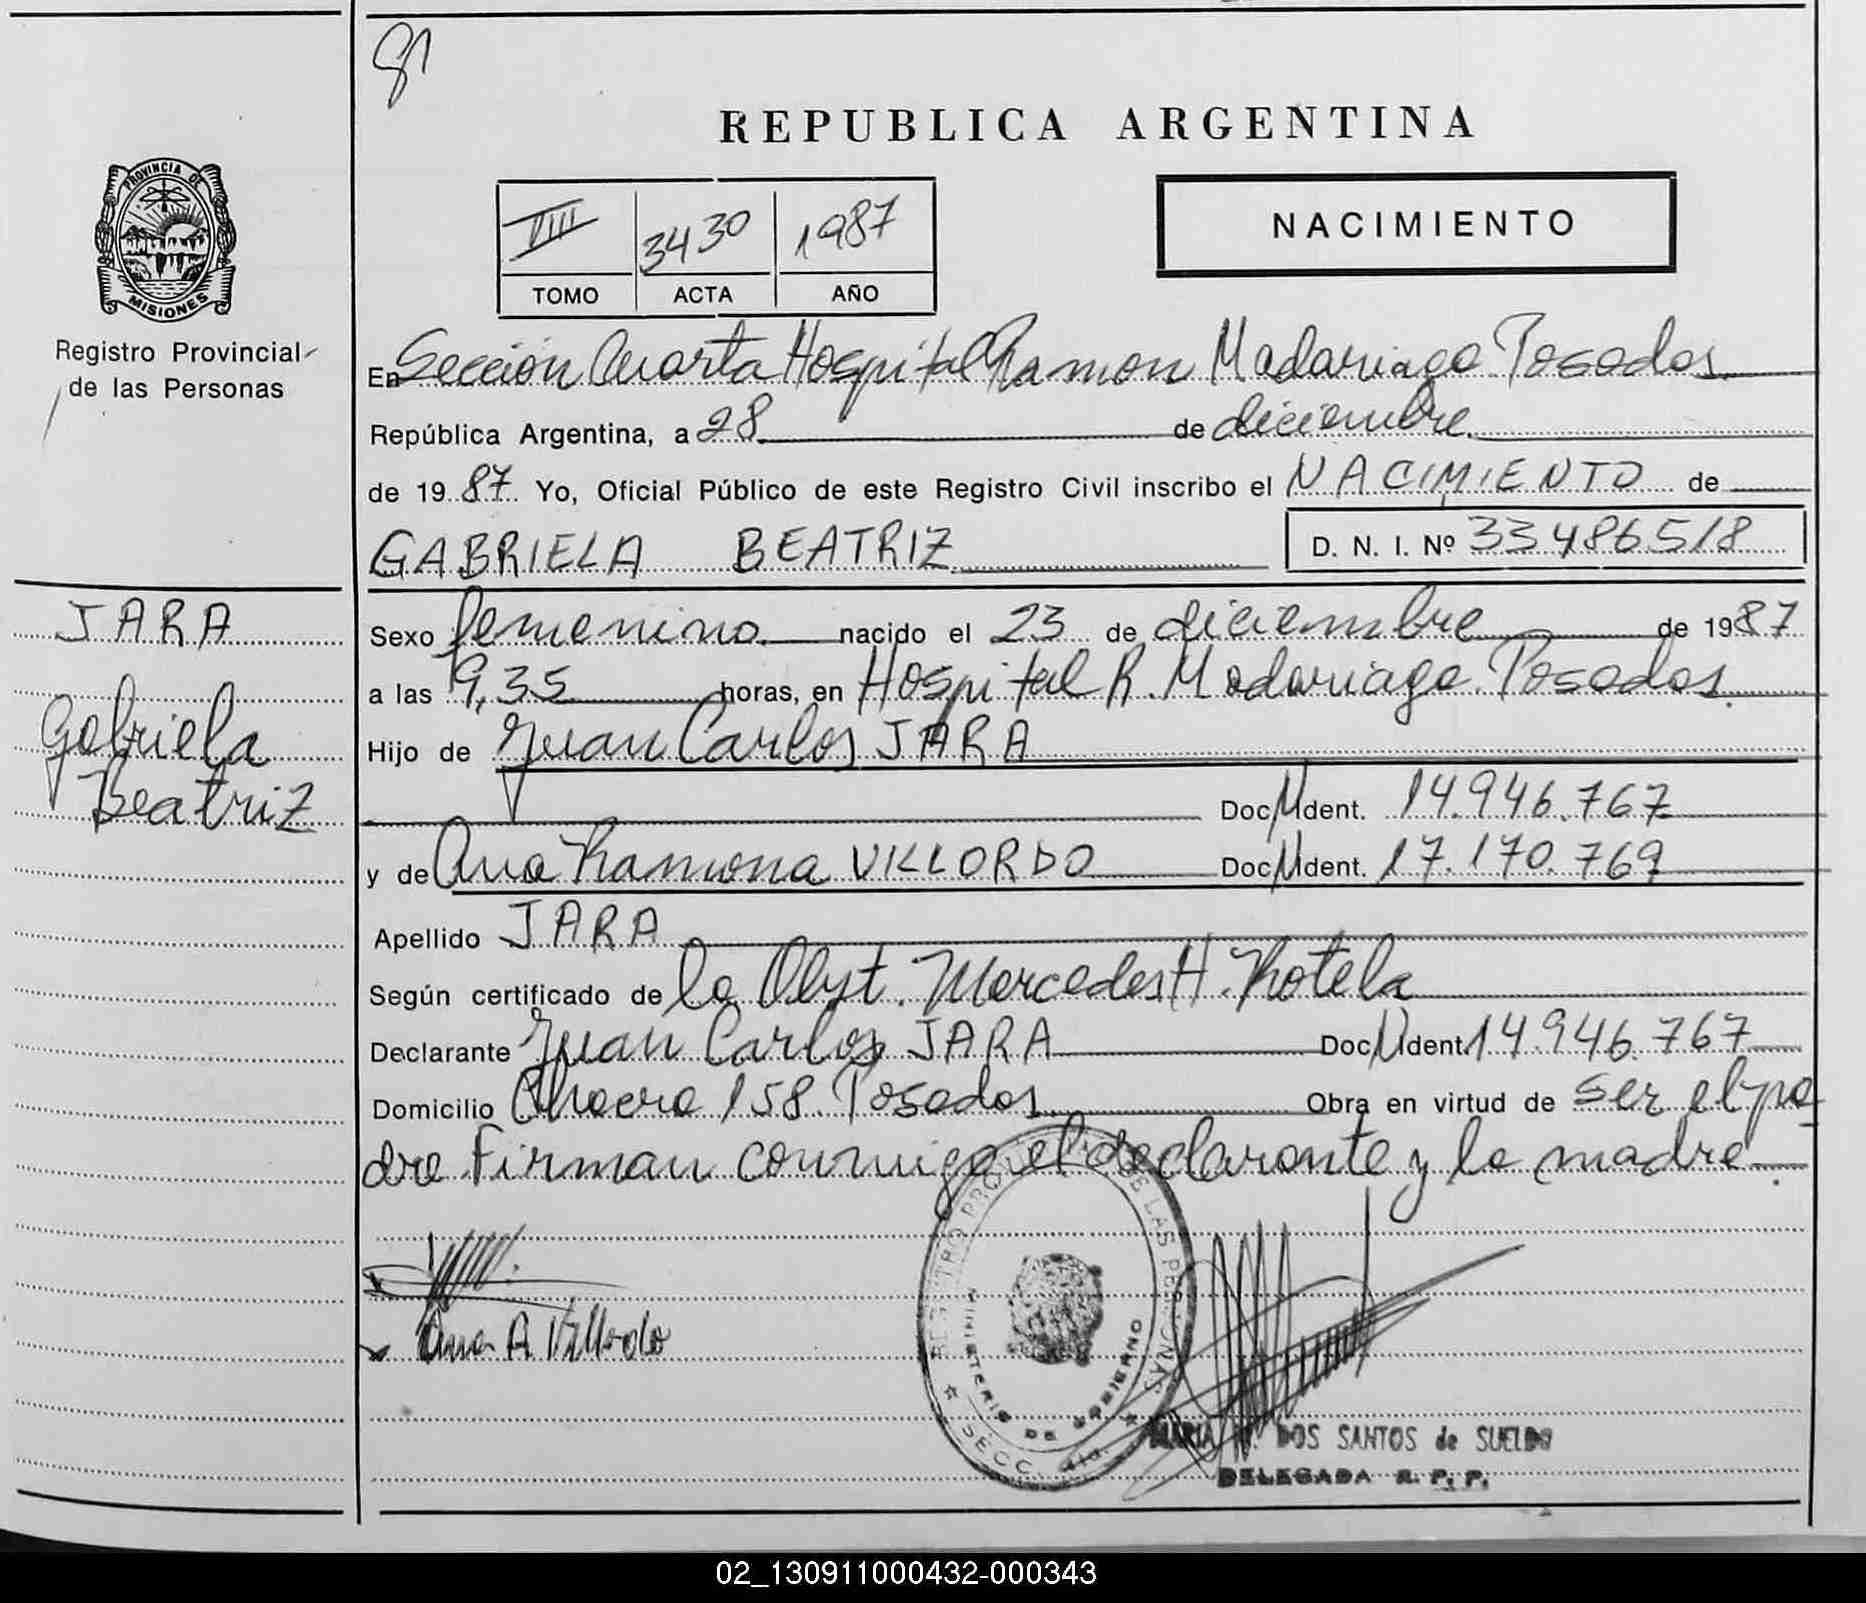 81
REPUBLICA ARGENTINA
PROVINCIA DE
MISIONES
VIII 3430 1987
TOMO ACTA AÑO
NACIMIENTO
Registro Provincial
de las Personas
En Sección Cuarta Hospital Ramon Madariaga Posadas
República Argentina, a 28 de diciembre
de 1987 Yo, Oficial Público de este Registro Civil inscribo el NACIMIENTO de
GABRIELA BEATRIZ D. N. I. Nº 33486518
JARA
Gabriela
Beatriz
Sexo femenino nacido el 23 de diciembre de 1987
a las 9,35 horas, en Hospital R. Madariaga. Posadas.
Hijo de Juan Carlos JARA
Doc. Ident. 14.946.767
y de Ana Ramona VILLORDO Doc. Ident. 17.170.769
Apellido JARA
Según certificado de la Obst. Mercedes H. Rotela
Declarante Juan Carlos JARA Doc. Ident. 14.946.767
Domicilio Chacra 158. Posadas Obra en virtud de ser el pa
dre Firman conmigo el declarante y la madre.
Ana R Villordo
REGISTRO PROVINCIAL DE LAS PERSONAS
MINISTERIO DE GOBIERNO
SECC. 4ta.
MARIA DOS SANTOS de SUELDO
DELEGADA R. P. P.
02_130911000432-000343